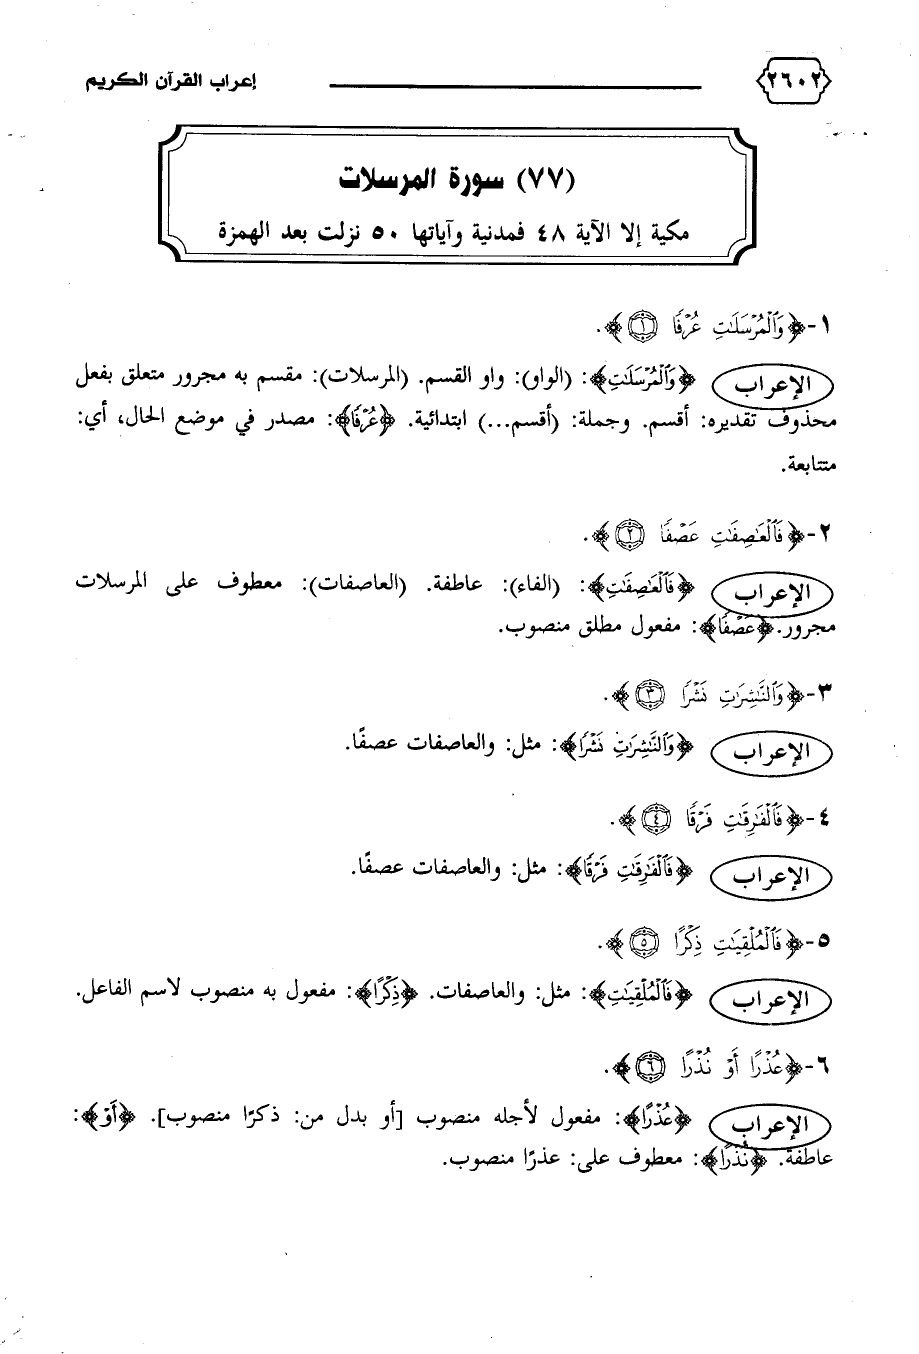 ٢٦٠٢ إعراب القرآن الكريم
(٧٧) سورة المرسلات
مكية إلا الآية ٤٨ فمدنية وآياتها ٥٠ نزلت بعد الهمزة
١-﴿وَٱلْمُرْسَلَٰتِ عُرْفًا ١﴾.
الإعراب ﴿وَٱلْمُرْسَلَٰتِ﴾: (الواو): واو القسم. (المرسلات): مقسم به مجرور متعلق بفعل
محذوف تقديره: أقسم. وجملة: (أقسم...) ابتدائية. ﴿عُرْفًا﴾: مصدر في موضع الحال، أي:
متتابعة.
٢-﴿فَٱلْعَٰصِفَٰتِ عَصْفًا ٢﴾.
الإعراب ﴿فَٱلْعَٰصِفَٰتِ﴾: (الفاء): عاطفة. (العاصفات): معطوف على المرسلات
مجرور. ﴿عَصْفًا﴾: مفعول مطلق منصوب.
٣-﴿وَٱلنَّٰشِرَٰتِ نَشْرًا ٣﴾.
الإعراب ﴿وَٱلنَّٰشِرَٰتِ نَشْرًا﴾: مثل: والعاصفات عصفًا.
٤-﴿فَٱلْفَٰرِقَٰتِ فَرْقًا ٤﴾.
الإعراب ﴿فَٱلْفَٰرِقَٰتِ فَرْقًا﴾: مثل: والعاصفات عصفًا.
٥-﴿فَٱلْمُلْقِيَٰتِ ذِكْرًا ٥﴾.
الإعراب ﴿فَٱلْمُلْقِيَٰتِ﴾: مثل: والعاصفات. ﴿ذِكْرًا﴾: مفعول به منصوب لاسم الفاعل.
٦-﴿عُذْرًا أَوْ نُذْرًا ٦﴾.
الإعراب ﴿عُذْرًا﴾: مفعول لأجله منصوب [أو بدل من: ذكرًا منصوب]. ﴿أَوْ﴾:
عاطفة. ﴿نُذْرًا﴾: معطوف على: عذرًا منصوب.